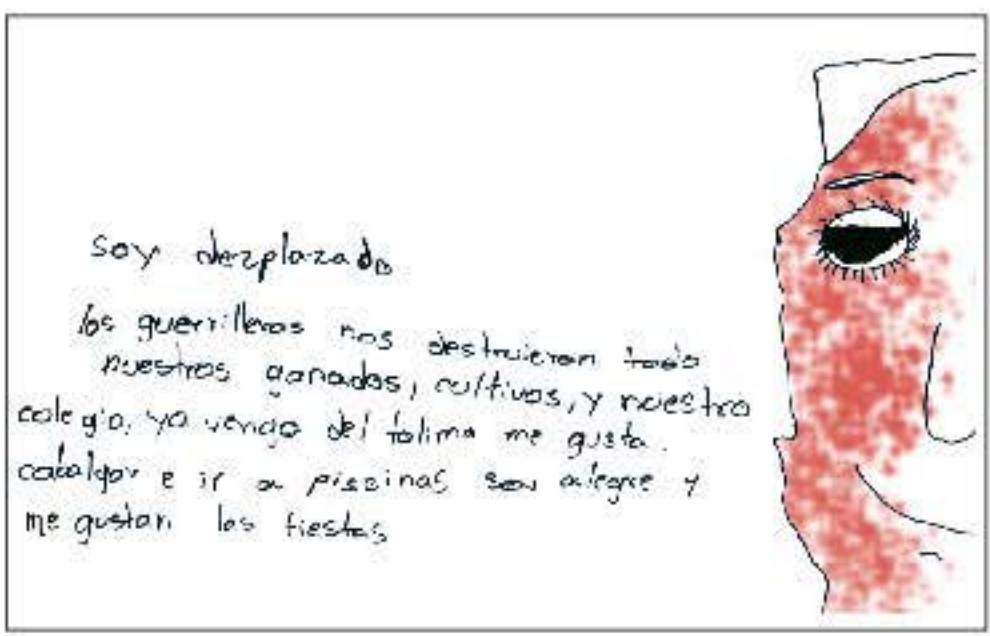 Soy dezplazado
los guerrilleros nos destruieron todo
nuestros ganados, cultivos, y nuestro
colegio, yo vengo del tolima me gusta
cabalgar e ir a piscinas soy alegre y
me gustan las fiestas